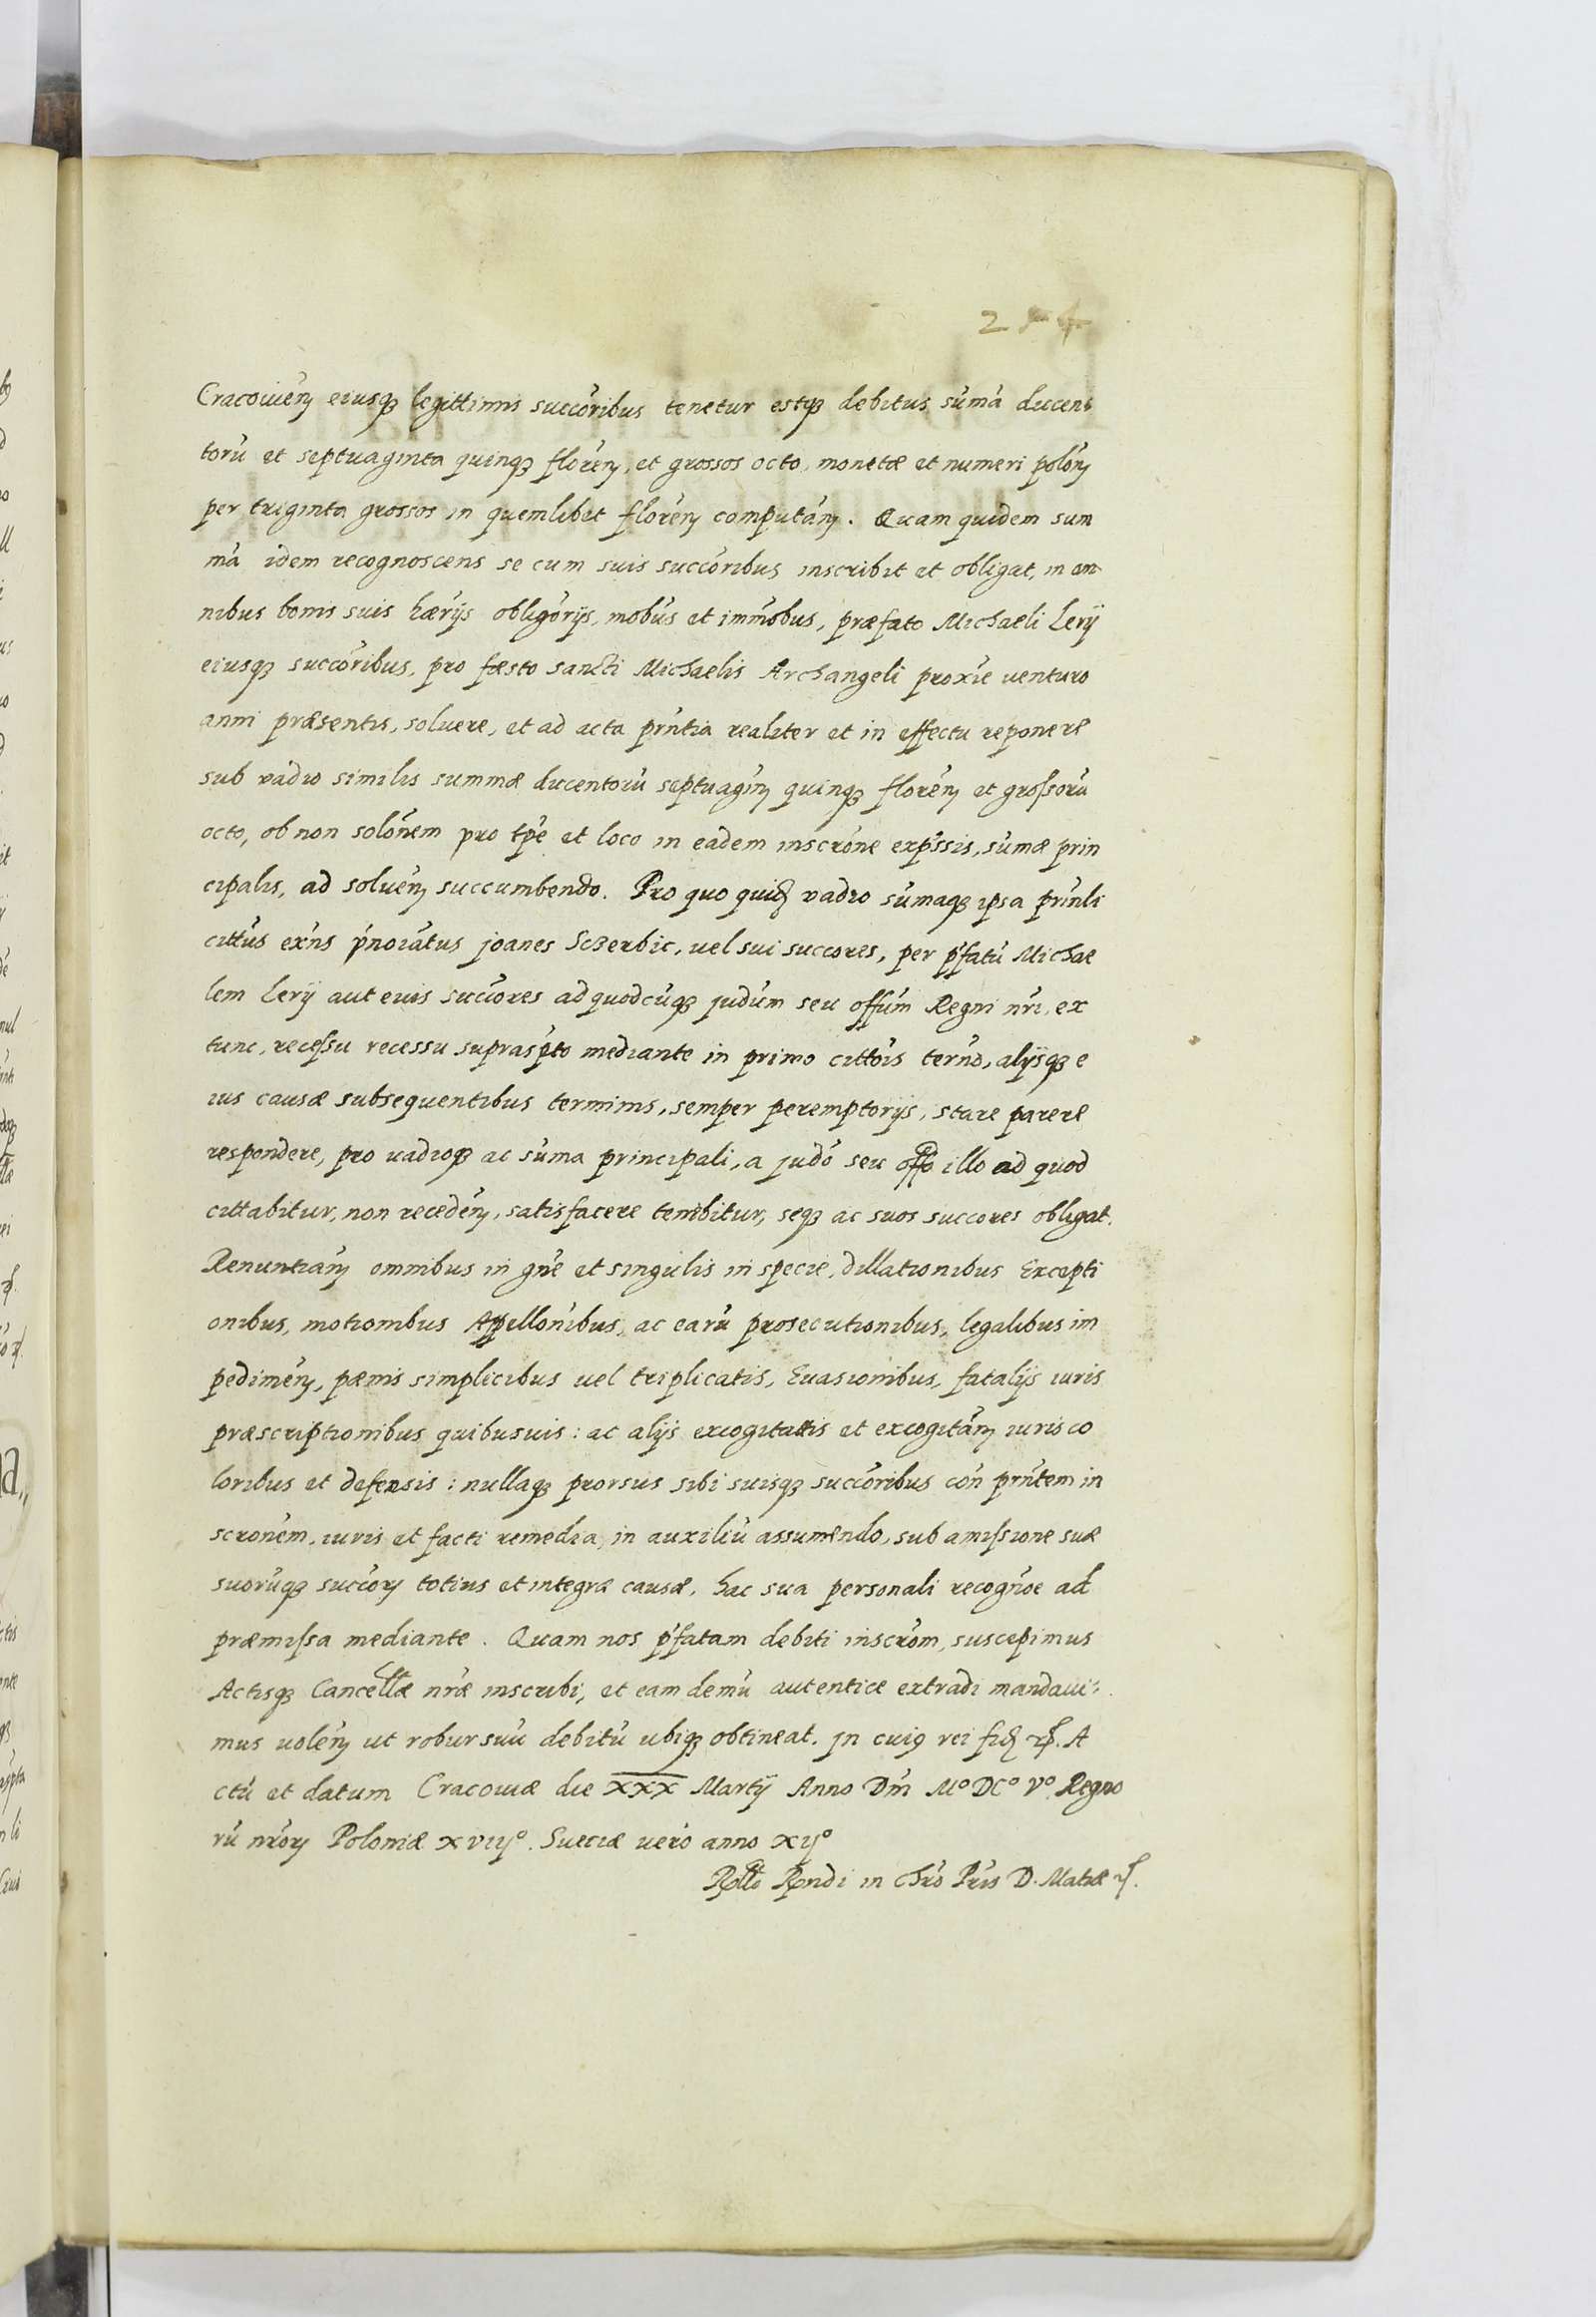 Cracouień eiusq₃ legittimis succoribus tenetur estq₃ debitus sūma ducen
torū et septuaginta quinq₃ floreń, et grossos octo, monetæ et numeri poloń
per triginta grossos in quemlibet floreń computań. Quam quidem sum
mā idem recognoscens se cum suis succoribus inscribit et obligat, in om
nibus bonis suis hærijs obligorijs, mobus et immobus, præfato Michaeli Lerij
eiusq₃ succoribus, pro fæsto sancti Michaelis Archangeli proxie venturo
anni præsentis, soluere, et ad acta prntia realiter et in effectu reponere
sub vadio similis summæ ducentorū septuagiń quinq₃ floreń et grossorū
octo, ob non solonem pro tpe et loco in eadem inscrone expssis, sūmæ prin
cipalis, ad solueń succumbendo. Pro quo quid vadio sūmaq₃ ipsa prinli
cittus exns pnoiatus joanes Sczerbic, uel sui succores, per pfatū Michae
lem Lerij aut euis succores ad quodcūq₃ judum seu offum Regni nri, ex
tunc, recessu recessu suprasptо mediante in primo cittois terno, alijsq₃ e
ius causæ subsequentibus terminis, semper peremptorijs, stare parere
respondere, pro uadioq₃ ac sūma principali, a judo seu offo illo ad quod
cittabitur, non recedeń, satisfacere tenebitur, seq₃ ac suos succores obligat.
Renuntiań omnibus in gne et singulis in specie, dillationibus Excepti
onibus, motionibus Appellonibus, ac earū prosecutionibus, legalibus im
pedimeń, pænis simplicibus uel triplicatis, Euasionibus, fatalijs iuris
præscriptionibus quibusuis: ac alijs excogitattis et excogitań iuris co
loribus et defensis: nullaq₃ prorsus sibi suisq₃ succoribus con prntem in
scronem, iuris et facti remedia, in auxiliū assumendo, sub amissione suæ
suorūq₃ succorꝝ totius et integræ causæ, hac sua personali recognoe ad
præmissa mediante. Quam nos pfatam debiti inscrom, suscepimus
Actisq₃ Cancellæ nræ inscribi, et eam demū autentice extradi mandaui
mus uoleń ut robur suū debitū ubiq₃ obtineat. jn cuiꝰ rei fid etc. A
ctū et datum Cracouiæ die XXX Martij Anno Dni M° DC° V° Regno
rū nrorꝝ Poloniæ xviij°. Sueciæ uero anno xij°
Rello Rndi in Chro Pris D. Matiæ etc.